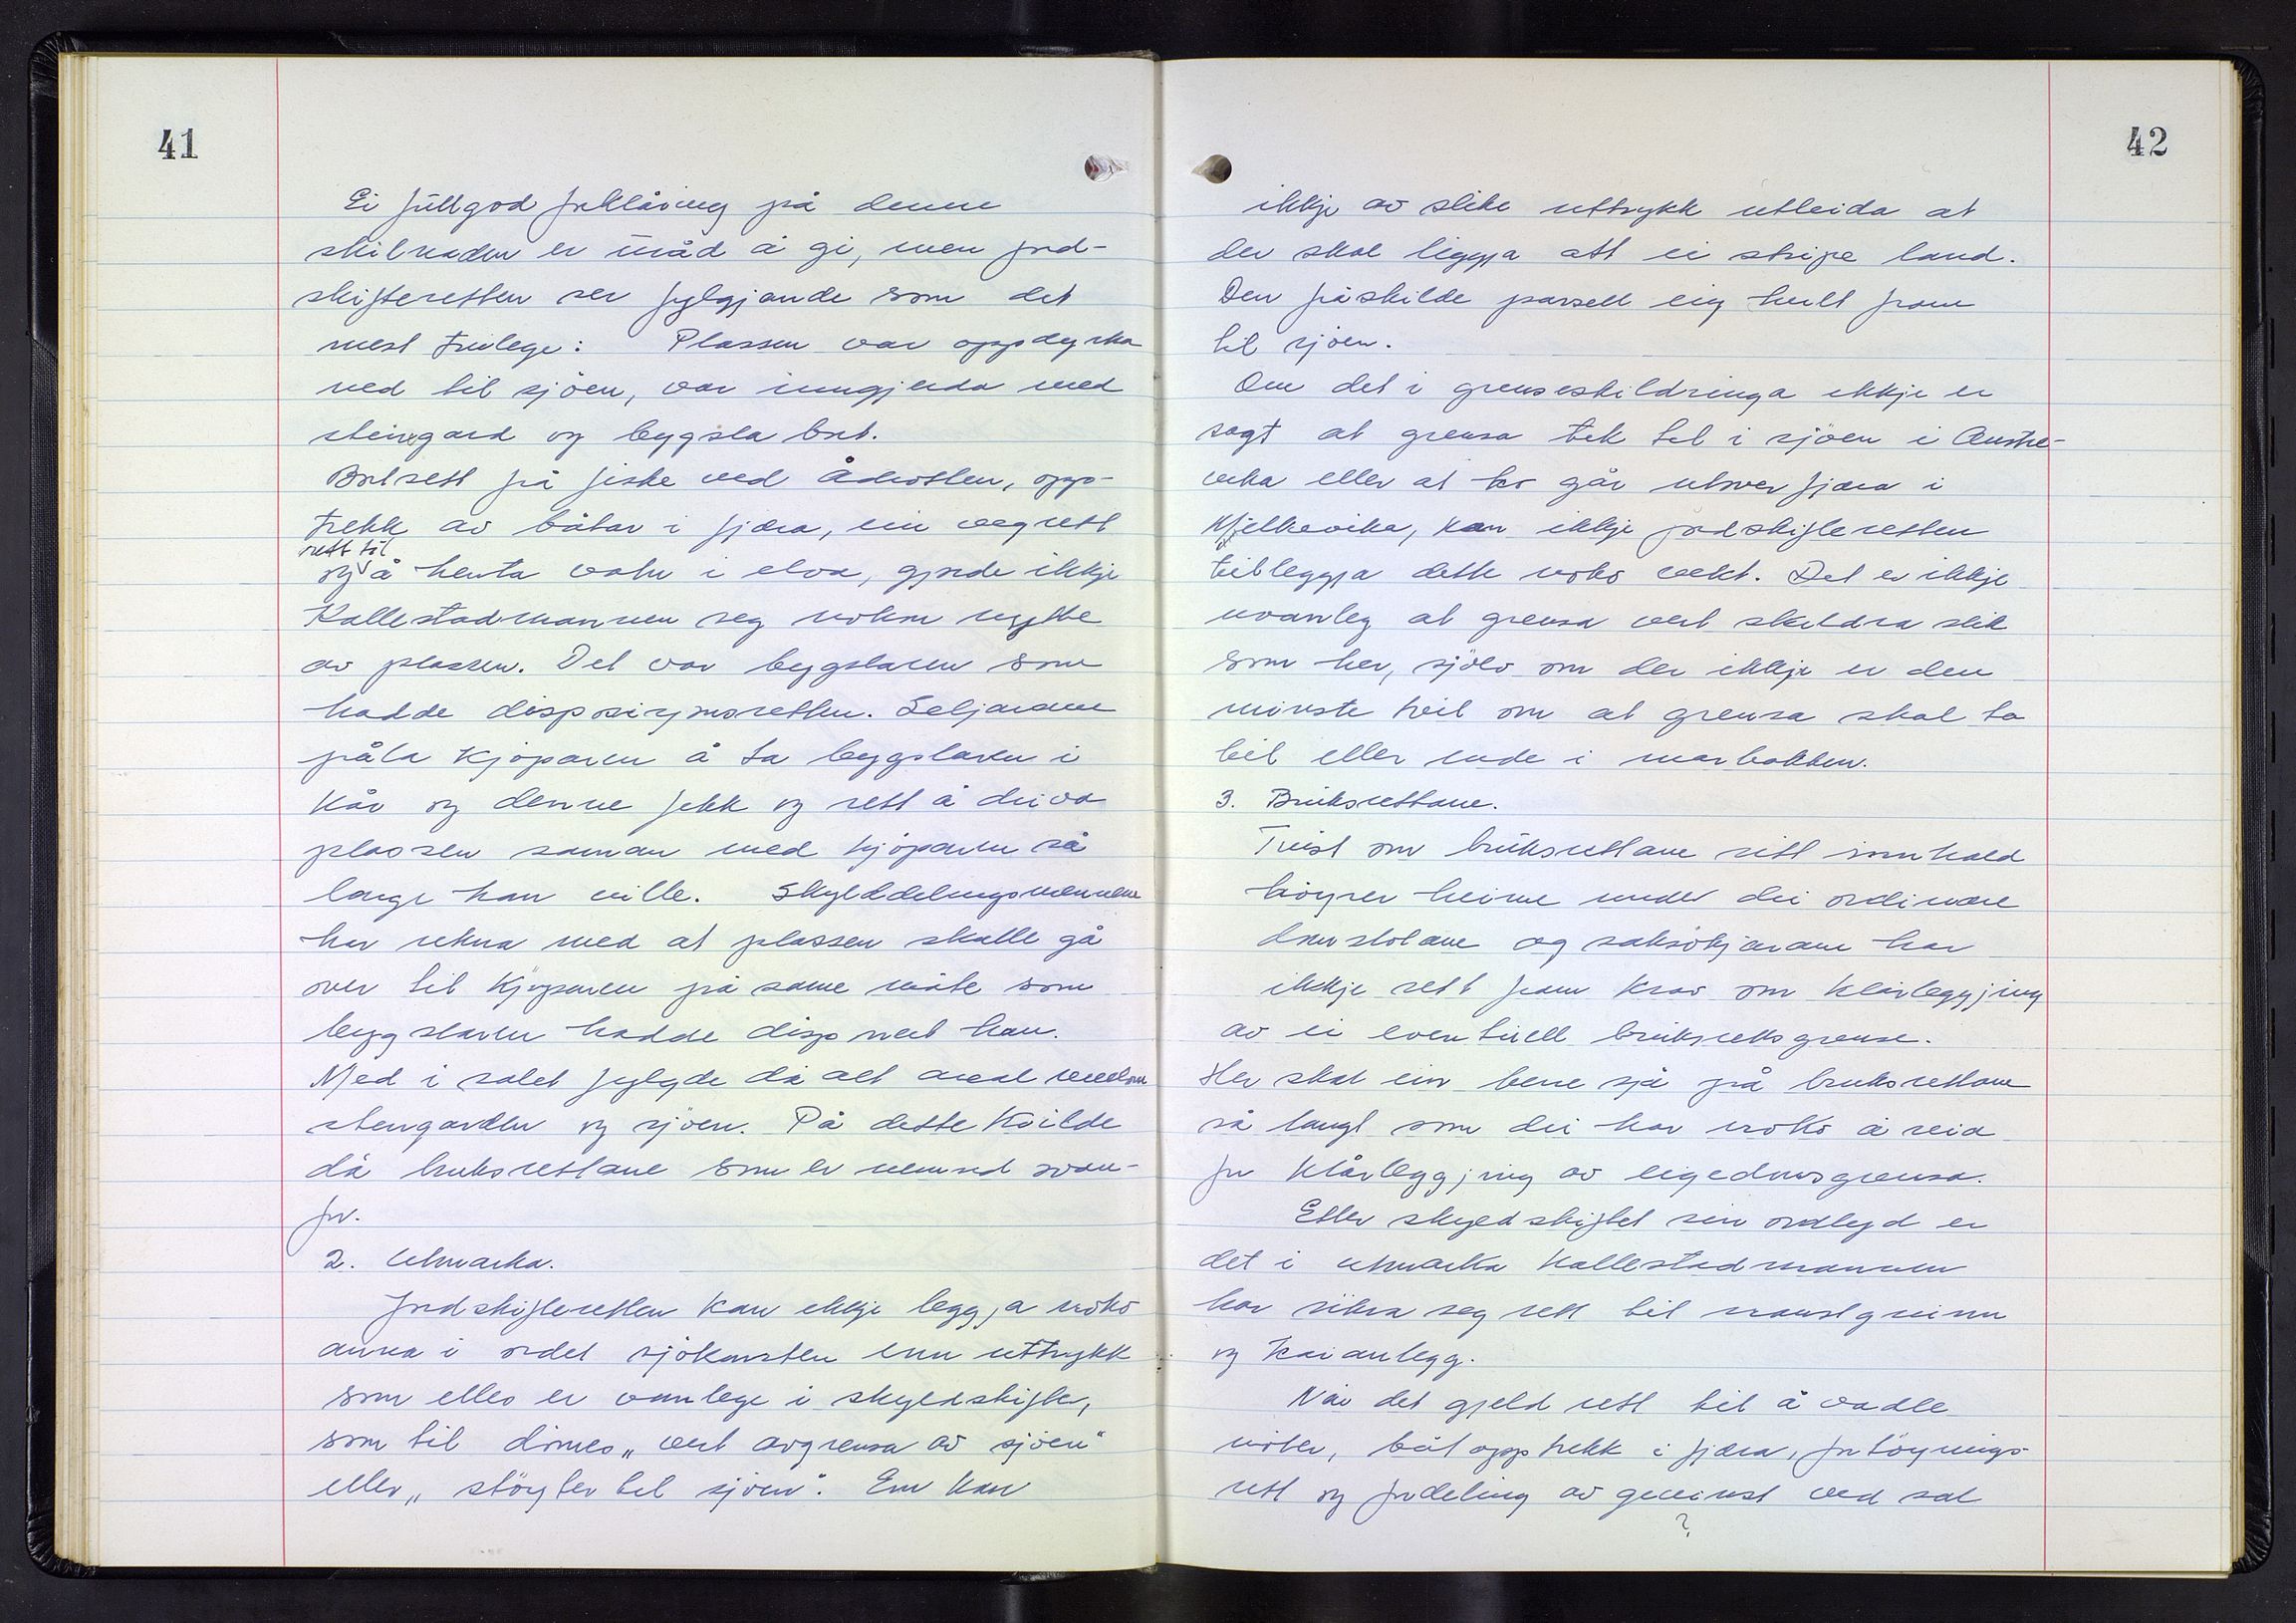 41
Ei fullgod forklåring på denne
skilnaden er uråd å gi, men jord-
skifteretten ser fylgjande som det
mest truleg: Plassen var oppdyrka
ned til sjöen, var inngjerda med
steingard og bygsla bort.
Bortsett frå fiske ved Åderotten, opp-
trekk av båtar i fjæra, ein vegrett
rett til
og å henta vatn i elva, gjorde ikkje
Kallestadmannen seg nokon nytte
av plassen. Det var bygslaren som
hadde disposisjonsretten. Seljarane
påla kjöparen å ta bygslaren i
kår og denne fekk og rett å driva
plassen saman med kjöparen så
lenge han ville. Skylddelingsmennene
har rekna med at plassen skulle gå
over til kjöparen på same måte som
bygslaren hadde disponert han.
Med i salet fylgde då alt areal mellom
steingarden og sjöen. På dette kvilde
då bruksrettane som er nemnd ovan-
for.
2. Utmarka.
Jordskifteretten kan ikkje leggja noko
anna i ordet sjökanten enn uttrykk
som elles er vanlege i skyldskifte,
som til dömes „ vert avgrensa av sjöen"
eller „ stöyter til sjöen". Ein kan
42
ikkje av slike uttrykk utleida at
der skal liggja att ei stripe land.
Den fråskilde parsell eig heilt fram
til sjöen.
Om det i grenseskildringa ikkje er
sagt at grensa tek til i sjöen i Austre-
vika eller at ho går utover fjæra i
Mjelkevika, kan ikkje jordskifteretten
tilleggja dette noko vekt. Det er ikkje
uvanleg at grensa vert skildra slik
som her, sjölv om der ikkje er den
minste tvil om at grensa skal ta
til eller ende i marbakken.
3. Bruksrettane.
Tvist om bruksrettane sitt innhald
höyrer heime under dei ordinære
domstolane og saksökjarane har
ikkje sett fram krav om klårleggjing
av ei eventuell bruksrettsgrense.
Her skal ein berre sjå på bruksrettane
så langt som dei har noko å seia
for klårleggjing av eigedomsgrensa.
Etter skyldskiftet sin ordlyd er
det i utmarka Kallestadmannen
har sikra seg rett til naustgrunn
og kaianlegg.
Når det gjeld rett til å vadle
nöter, båtopptrekk i fjæra, fortöynings-
rett og fordeling av gevinst ved sal
?